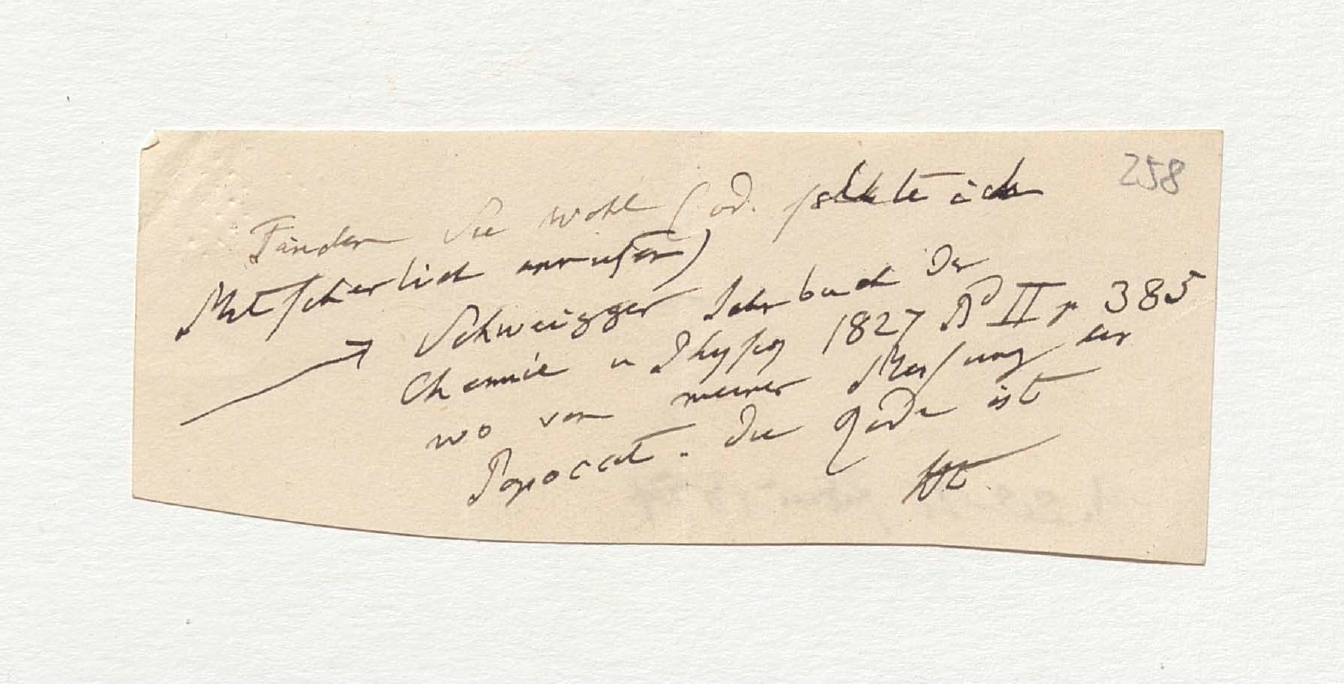 258
Fänden Sie wohl (od. sollte ich
Mitscherlich anrufen)
Schweigger Jahrbuch der
Chemie u Physik 1827 Bd II p 385
wo von meiner Messung des
Popocat. die Rede ist
Ht